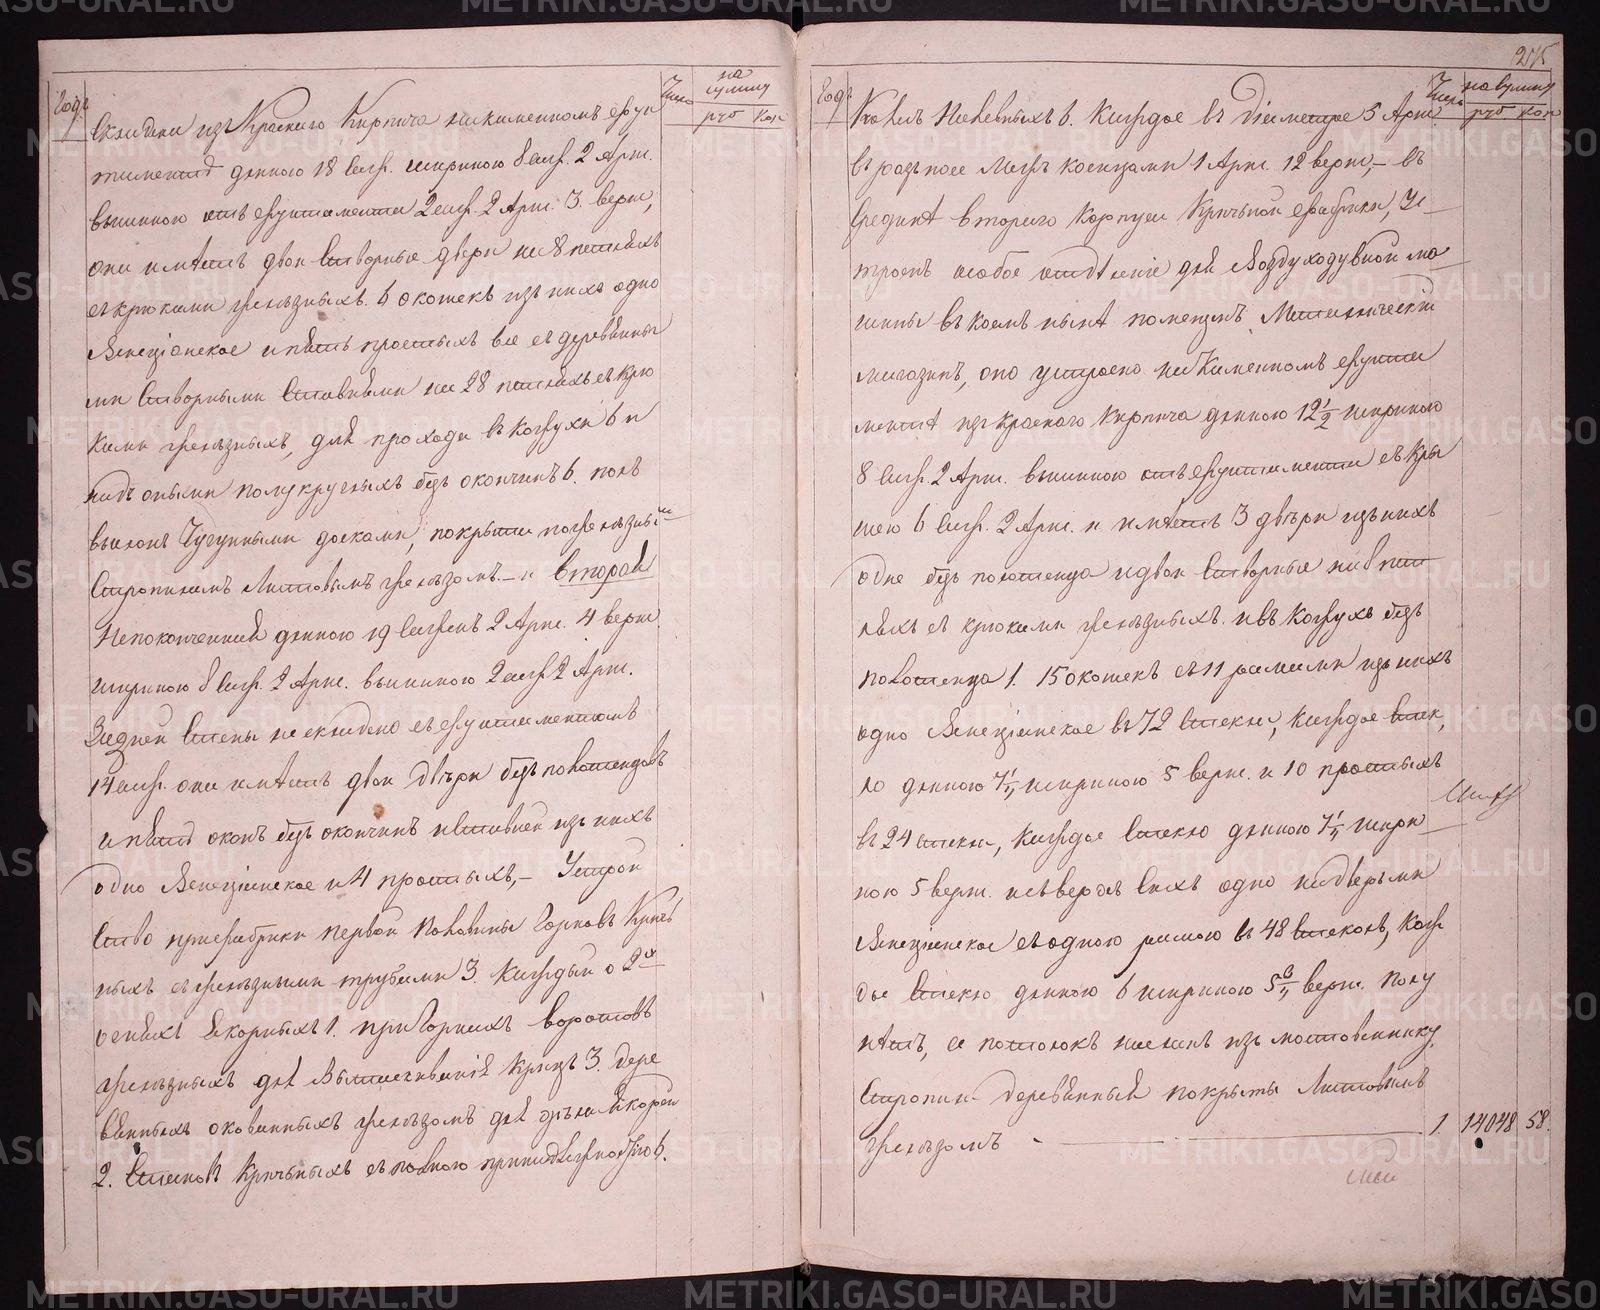 Годъ
Число
на сумму
руб коп
складена изъ Краснаго Кирпича на каменномъ фун
таментѣ длиною 18 саж. шириною 8 саж. 2 Арш.
вышиною отъ фунтамента 2 саж. 2 Арш. 3. верш,
они имѣетъ двои створные двери на 8 петляхъ
съ крюками желѣзныхъ. 6 окошекъ изъ нихъ одно
Венеціонское и пять простыхъ все съ деревянны
ми створными ставнями на 28 петляхъ съ крю
ками желѣзныхъ, для прохода въ Кожухи 6 и
надъ оными полукруглыхъ безъ окончинъ 6. полъ
высланъ Чугунными досками, покрыта по желѣзнымъ
стропиламъ Листовымъ желѣзомъ. – и вторая
Непоконченная длиною 19 саженъ 2 Арш. 4 верш.
шириною 8 саж. 2 Арш. вышиною 2 саж 2 Арш.
Задней стены не складено съ фунтаментомъ
14 саж. она имѣетъ двои двѣри безъ полотенцовъ
и пять оконъ безъ окончинъ и ставней изъ нихъ
одно Венеціенское и 4 простыхъ, – Устрой
ство при фабрики первой половины Горновъ Крич
ныхъ съ желѣзными трубами 3. Каждый о 2хъ
огняхъ Якорныхъ 1. при Горнахъ воротовъ
желѣзныхъ для Вытаскиванія Крицъ 3. дере
вянныхъ окованныхъ желѣзомъ для дѣла Якорей
2. Становъ Кричныхъ съ полною принадлежностію 6.
215
Годъ
Число
на сумму
руб коп
Колесъ Наливныхъ 6. Каждое въ діаметре 5 Арш.
въ разносе межъ косяками 1 Арш. 12 верш, – въ
Срединѣ втораго Корпуса Кричной фабрики, Ус
троенъ особое отдѣленіе для Воздуходувной ма
шины въ коемъ нынѣ помещенъ Металическій
магазинъ, оно устроено на Каменномъ фунта
ментѣ изъ Краснаго Кирпича длиною 12 1/2 шириною
8 саж. 2 Арш. вышиною отъ фунтамента съ Кры
шею 6 саж. 2 Арш. и имѣетъ 3 двѣри изъ нихъ
одне безъ полотенца и двои створные на 8 пет
ляхъ съ крюками желѣзныхъ. и въ Кожухъ безъ
полотенца 1. 15 окошекъ съ 11 рамами изъ нихъ
одно Венеціенское въ 72 стекла, Каждое стек
ло длиною 7 1/4 шириною 5 верш. и 10 простыхъ
въ 24 стекла, Каждое стекло длиною 7 1/4 шири
ною 5 верш. и сѣверхъ сихъ одно надверьми
Венеціенское съ одною рамою въ 48 стеколъ, Каж
дое стекло длиною 6 шириною 5 верш. Полу
нѣтъ, а потолокъ насланъ изъ мостовиннику.
Стропила деревянныя покрыты Листовымъ
желѣзомъ — 1. 14048 58.